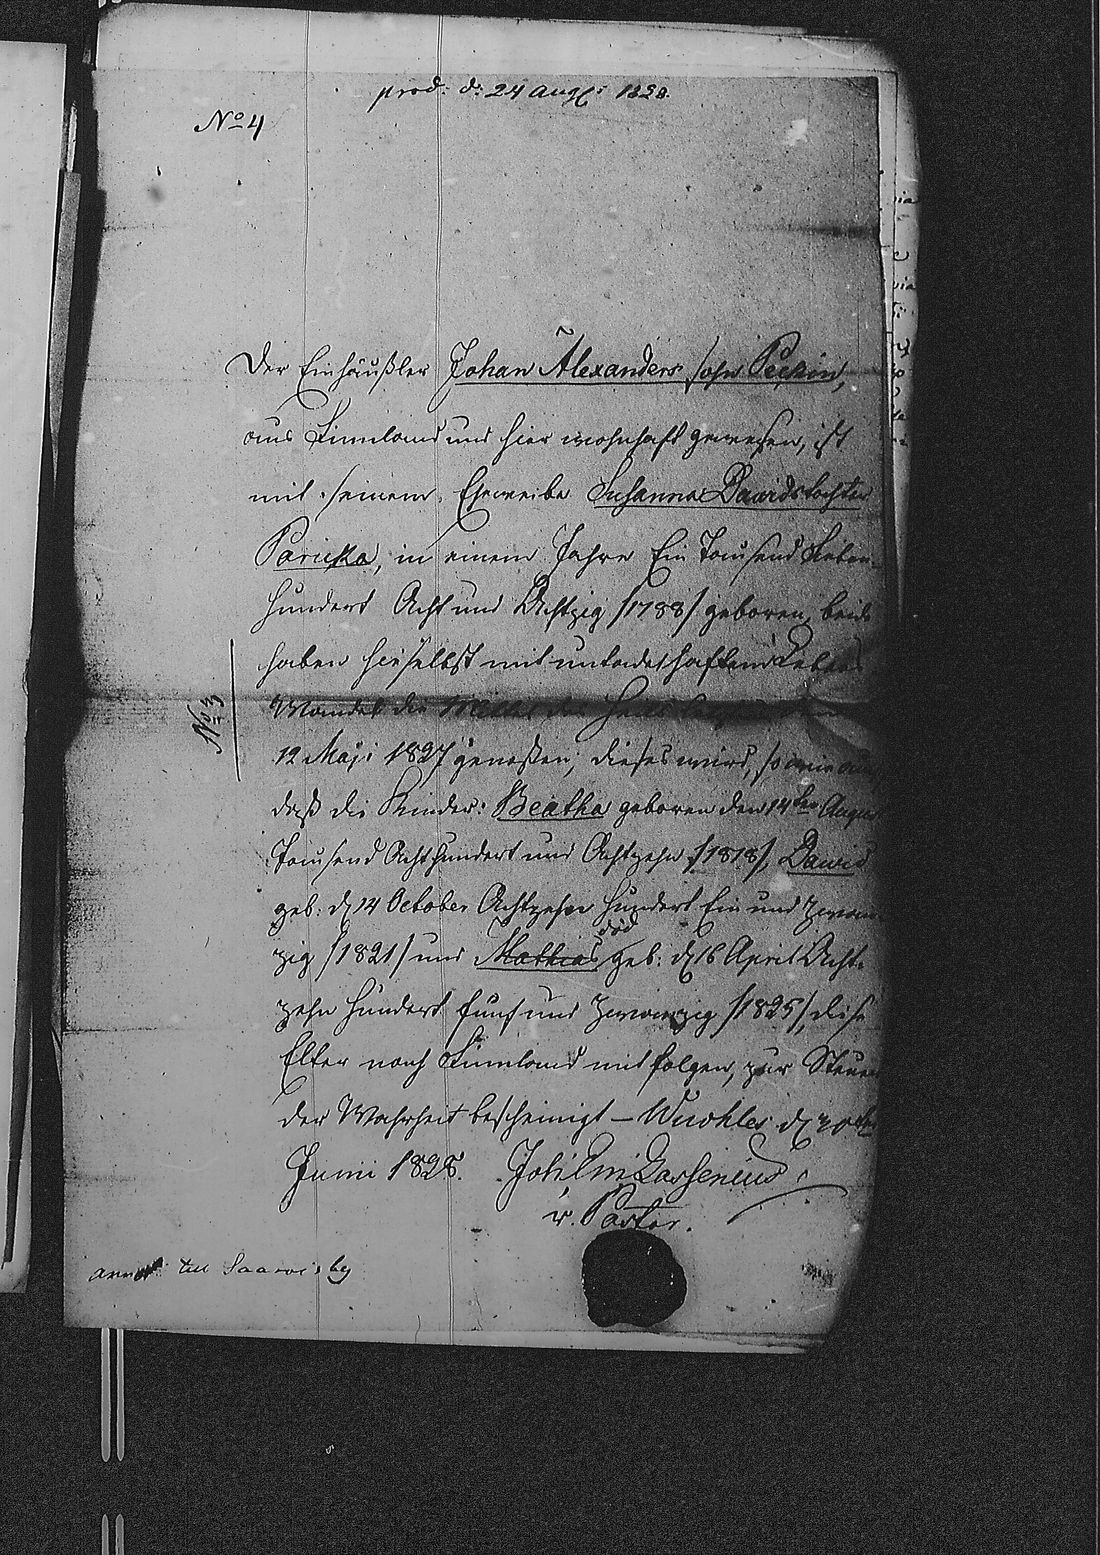 prod: d: 24 Aug: 1828.
No 4
Der Einhäußler Johan Alexanders sohn Peckin,
aus Finnland und hier wohnhaft gewesen, ist
mit seinem Eheweibe Susanna Davidstochter
Paricka, in einem Jahre Ein Tausend Sieben-
hundert Acht und Achtzig /1788/ geboren, beide
haben hieselbst mit untadelhaftem Lebens
Wandel die des
No 3
12 Maji 1827 genoßen; dieses wird, so wie auch,
daß die Kinder: Beatha geboren den 14ten August
Tausend Achthundert und Achtzehn /1818/, David
geb: d 14 October Achtzehn hundert Ein und Zwan-
död
zig /1821/ und Mathias, geb: d 16 April Acht-
zehn hundert fünf und Zwanzig /1825/, diese
Elter nach Finnland mit folgen, zur Steuer
der Wahrheit bescheinigt – Wuohles d 20ten
Juni 1828. Joh: Em: Lassenius
v. Pastor.
till